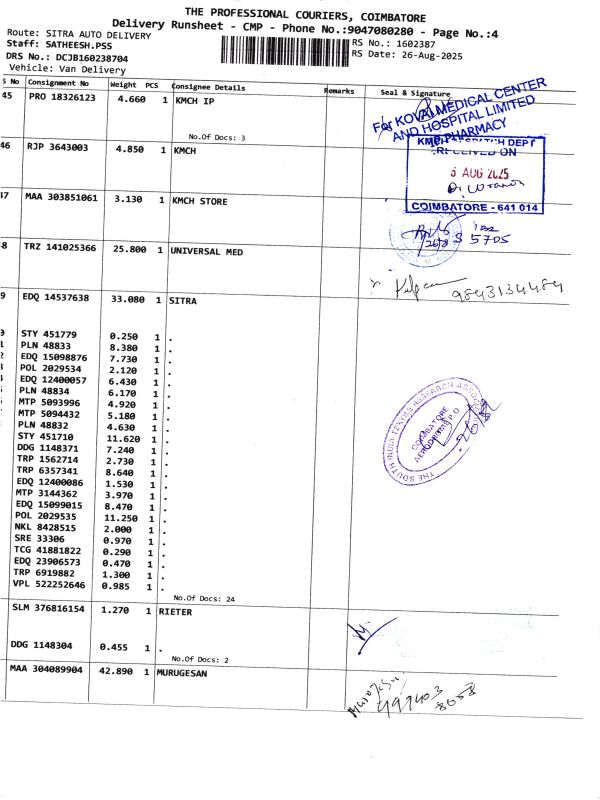 THE PROFESSIONAL COURIERS, COIMBATORE
Delivery Runsheet - CMP - Phone No.:9047080280 - Page No.:4
Route: SITRA AUTO DELIVERY
Staff: SATHEESH.PSS
RS No.: 1602387
DRS No.: DCJB160238704
RS Date: 26-Aug-2025
Vehicle: Van Delivery
S No Consignment No Weight PCS Consignee Details Remarks Seal & Signature
45 PRO 18326123 4.660 1 KMCH IP
No.Of Docs: 3
For KOVAI MEDICAL CENTER
AND HOSPITAL LIMITED
KMCH PHARMACY
46 RJP 3643003 4.850 1 KMCH
DEPT
RECEIVED ON
AUG 2025
COIMBATORE - 641 014
47 MAA 303851061 3.130 1 KMCH STORE
26/8
5705
8 TRZ 141025366 25.800 1 UNIVERSAL MED
9843134484
9 EDQ 14537638 33.080 1 SITRA
STY 451779 0.250 1 .
PLN 48833 8.380 1 .
EDQ 15098876 7.730 1 .
POL 2029534 2.120 1 .
EDQ 12400057 6.430 1 .
PLN 48834 6.170 1 .
MTP 5093996 4.920 1 .
MTP 5094432 5.180 1 .
PLN 48832 4.630 1 .
STY 451710 11.620 1 .
DDG 1148371 7.240 1 .
TRP 1562714 2.730 1 .
TRP 6357341 8.640 1 .
EDQ 12400086 1.530 1 .
MTP 3144362 3.970 1 .
EDQ 15099015 8.470 1 .
POL 2029535 11.250 1 .
NKL 8428515 2.000 1 .
SRE 33306 0.970 1 .
TCG 41881822 0.290 1 .
EDQ 23906573 0.470 1 .
TRP 6919882 1.300 1 .
VPL 522252646 0.985 1 .
No.Of Docs: 24
THE SOUTH INDIA TEXTILE RESEARCH ASSOCIATION
COIMBATORE
AERODROME P.O
SLM 376816154 1.270 1 RIETER
DDG 1148304 0.455 1 .
No.Of Docs: 2
MAA 304089904 42.890 1 MURUGESAN
8058